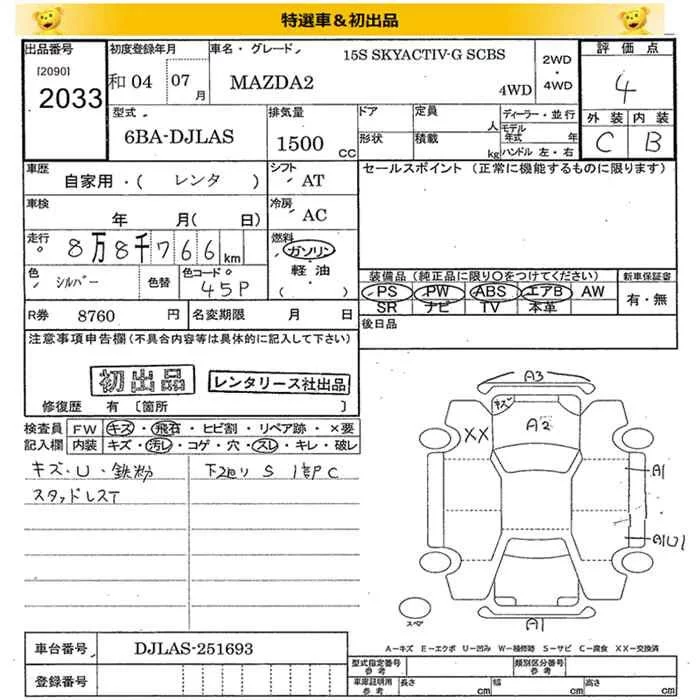 特選車&初出品
出品番号
[2090]
2033
初度登録年月
和04 07月
車名・グレード
15S SKYACTIV-G SCBS
MAZDA2
4WD
2WD・4WD
評価点
4
外装 内装
C B
型式
6BA-DJLAS
排気量
1500 cc
ドア
形状
定員 人
積載 kg
ディーラー・並行
モデル年式 年
ハンドル 左・右
車歴
自家用・( レンタ )
シフト
AT
車検
年 月( 日)
冷房
AC
走行
8万8千766 km
燃料
ガソリン
軽油
( )
色
シルバー
色替
色コード
45P
R券 8760 円
名変期限 月 日
セールスポイント (正常に機能するものに限ります)
装備品(純正品に限り○をつけてください)
PS PW ABS エアB AW
SR ナビ TV 本革
新車保証書
有・無
後日品
注意事項申告欄(不具合内容等は具体的に記入して下さい)
初出品
レンタリース社出品
修復歴 有 [箇所 ]
検査員記入欄
FW キズ・飛石・ヒビ割・リペア跡・×要
内装 キズ・汚レ・コゲ・穴・スレ・キレ・破レ
キズ・U・鉄粉
スタッドレスT
下廻り S
A3
キズ
A2
XX
A1
A1U1
A1
スペア
A=キズ E=エクボ U=凹み W=補修跡 S=サビ C=腐食 XX=交換済
車台番号 DJLAS-251693
登録番号
型式指定番号 参考
類別区分番号 参考
車庫証明用 参考
長さ cm
幅 cm
高さ cm